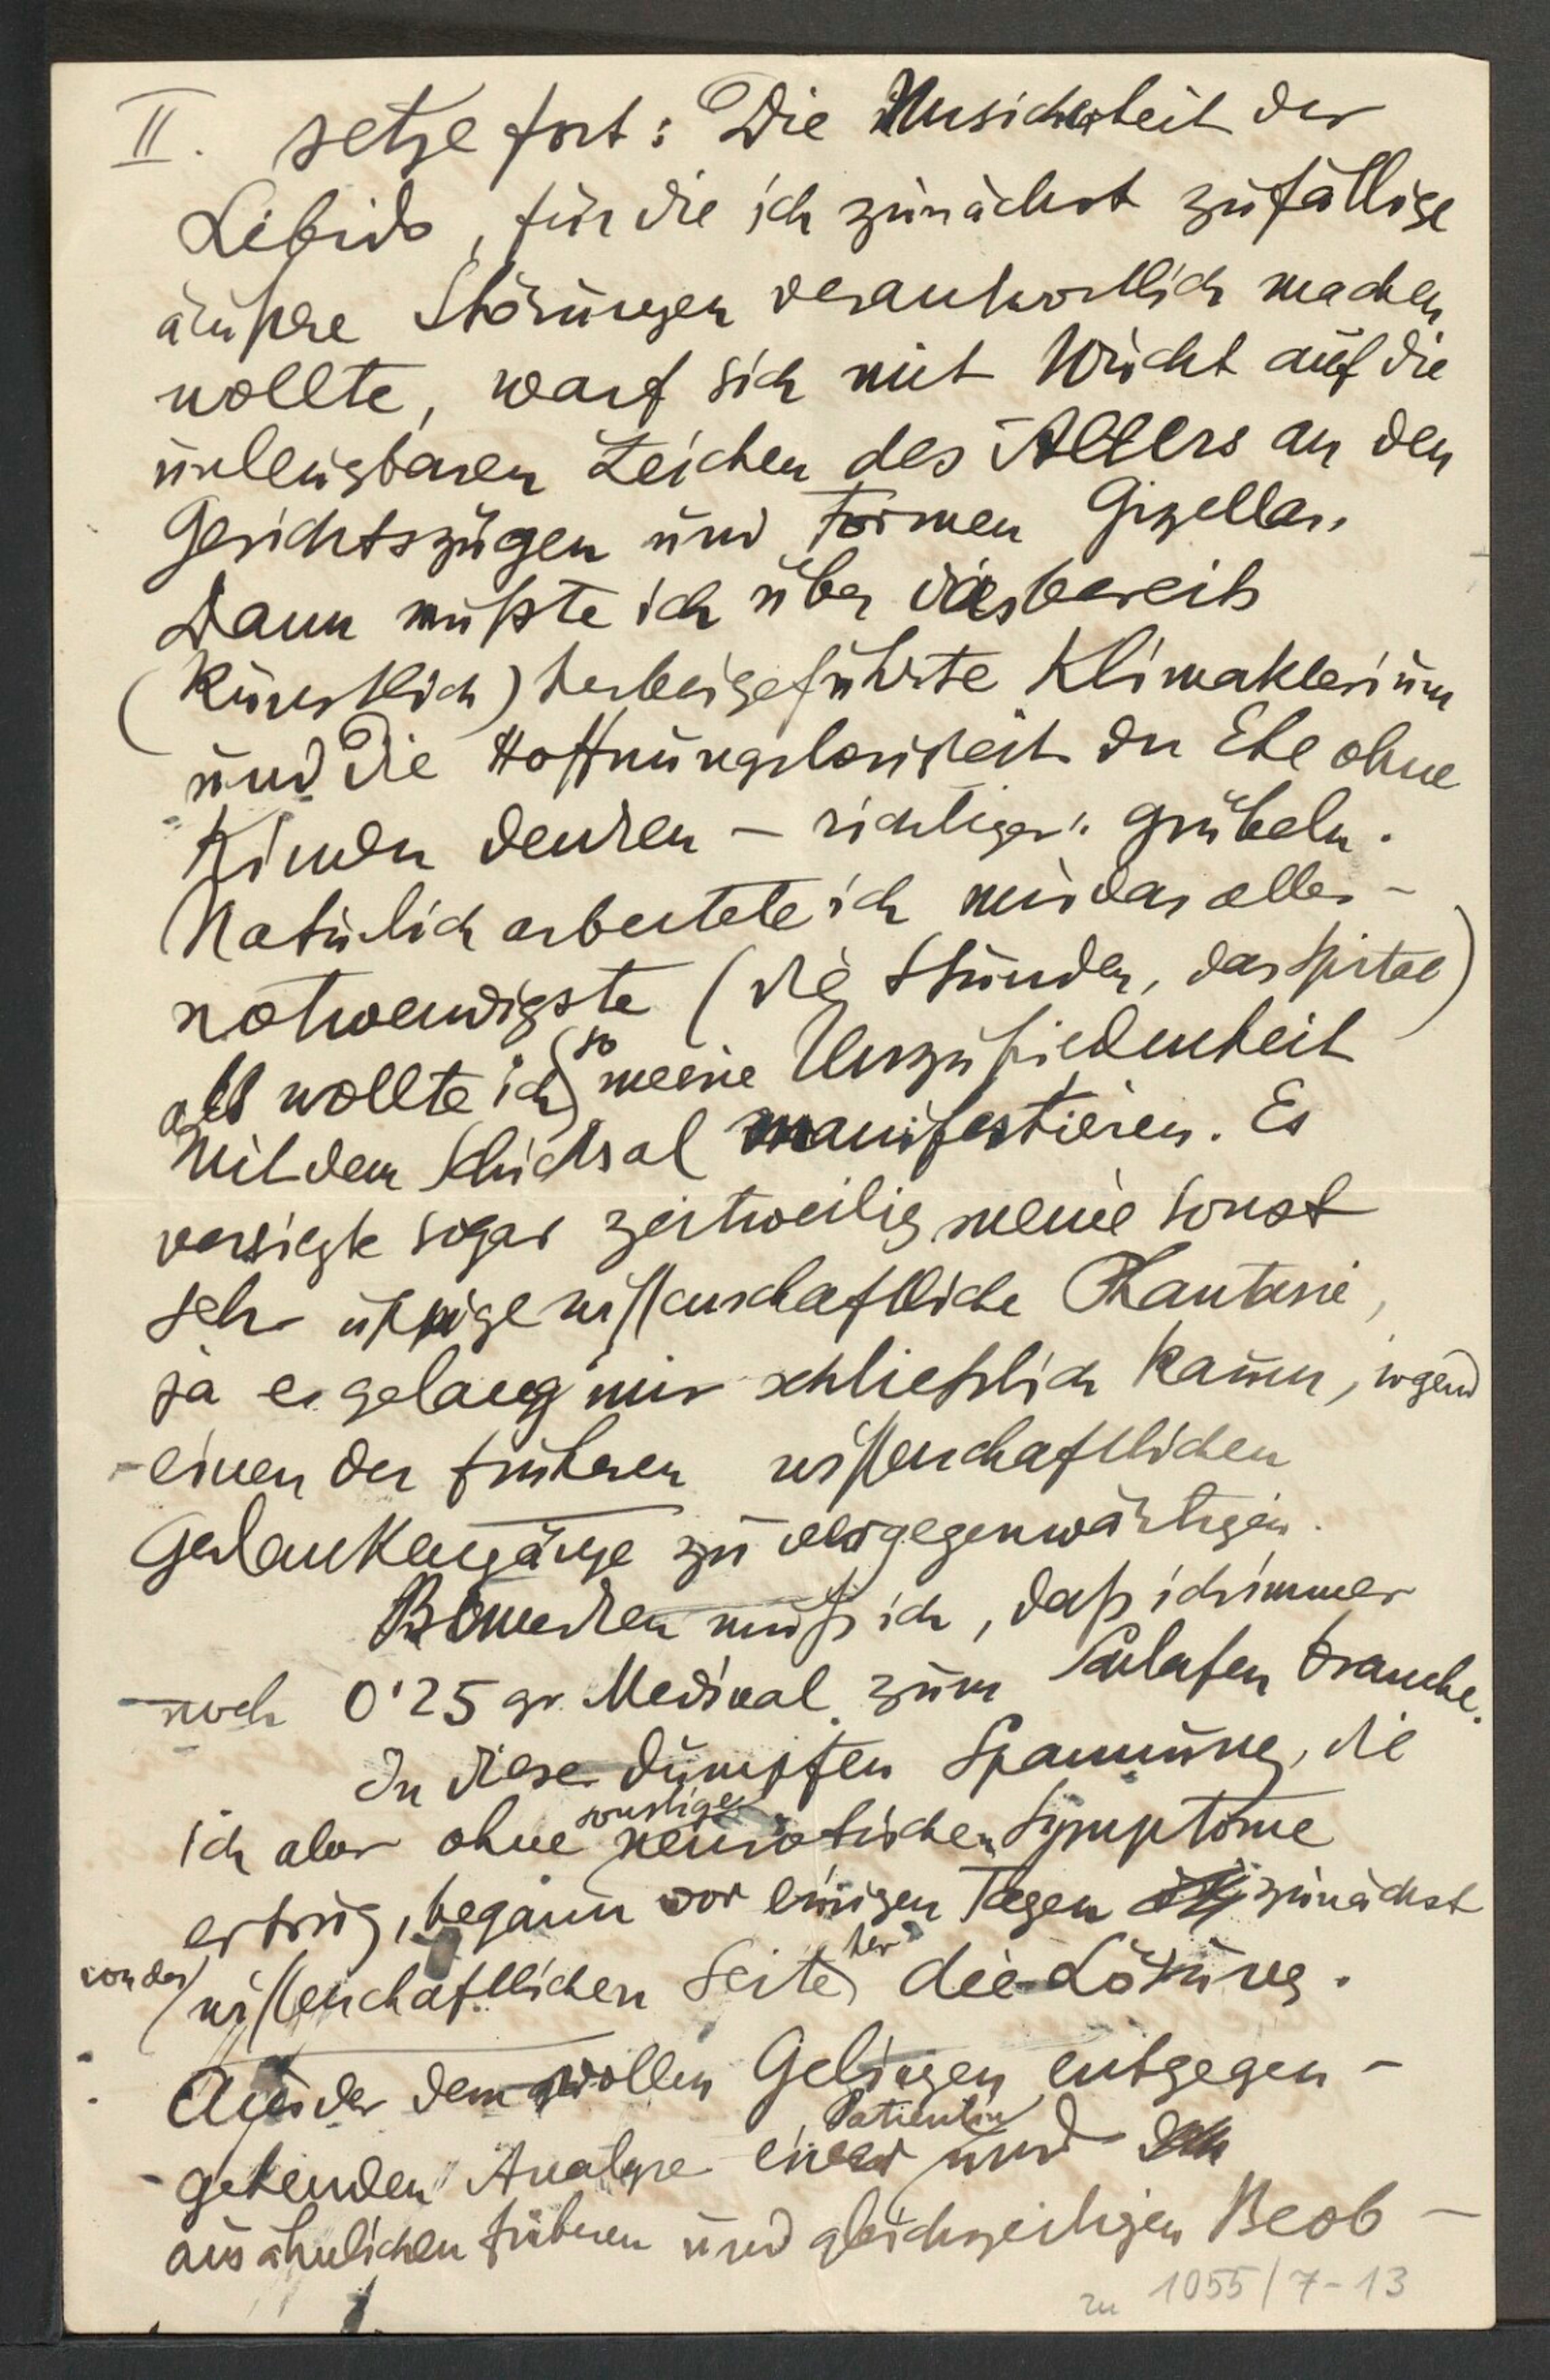 II. setze fort: Die Unsicherheit der
Libido, für die ich zunächst zufällige
äußere Störungen verantwortlich machen
wollte, warf sich mit Wucht auf die
unleugbaren Zeichen des Alters an den
Gesichtszügen und Formen Gizellas.
Dann mußte ich über das bereits
(künstlich) herbeigeführte Klimakterium
und die Hoffnungslosigkeit der Ehe ohne
Kinder denken – richtiger: grübeln.
Natürlich arbeitete ich nur das aller-
notwendigste (die Stunden, das Spital)
als wollte ich so meine Unzufriedenheit
mit dem Schicksal manifestieren. Es
versiegte sogar zeitweilig meine sonst
sehr üppige wissenschaftliche Phantasie,
ja es gelang mir schließlich kaum, irgend
einen der früheren wissenschaftlichen
Gedankengänge zu vergegenwärtigen.
Bemerken muß ich, daß ich immer
noch 0'25 gr. Medinal zum Schlafen brauche.
In dieser dumpfen Spannung, die
ich aber ohne sonstige neurotischen Symptome
ertrug, begann vor einigen Tagen zunächst
von der wissenschaftlichen Seite her die Lösung.
Aus der dem vollen Gelingen entgegen-
gehenden Analyse einer Patientin und
aus ähnlichen früheren und gleichzeitigen Beob-
zu 1055/7-13